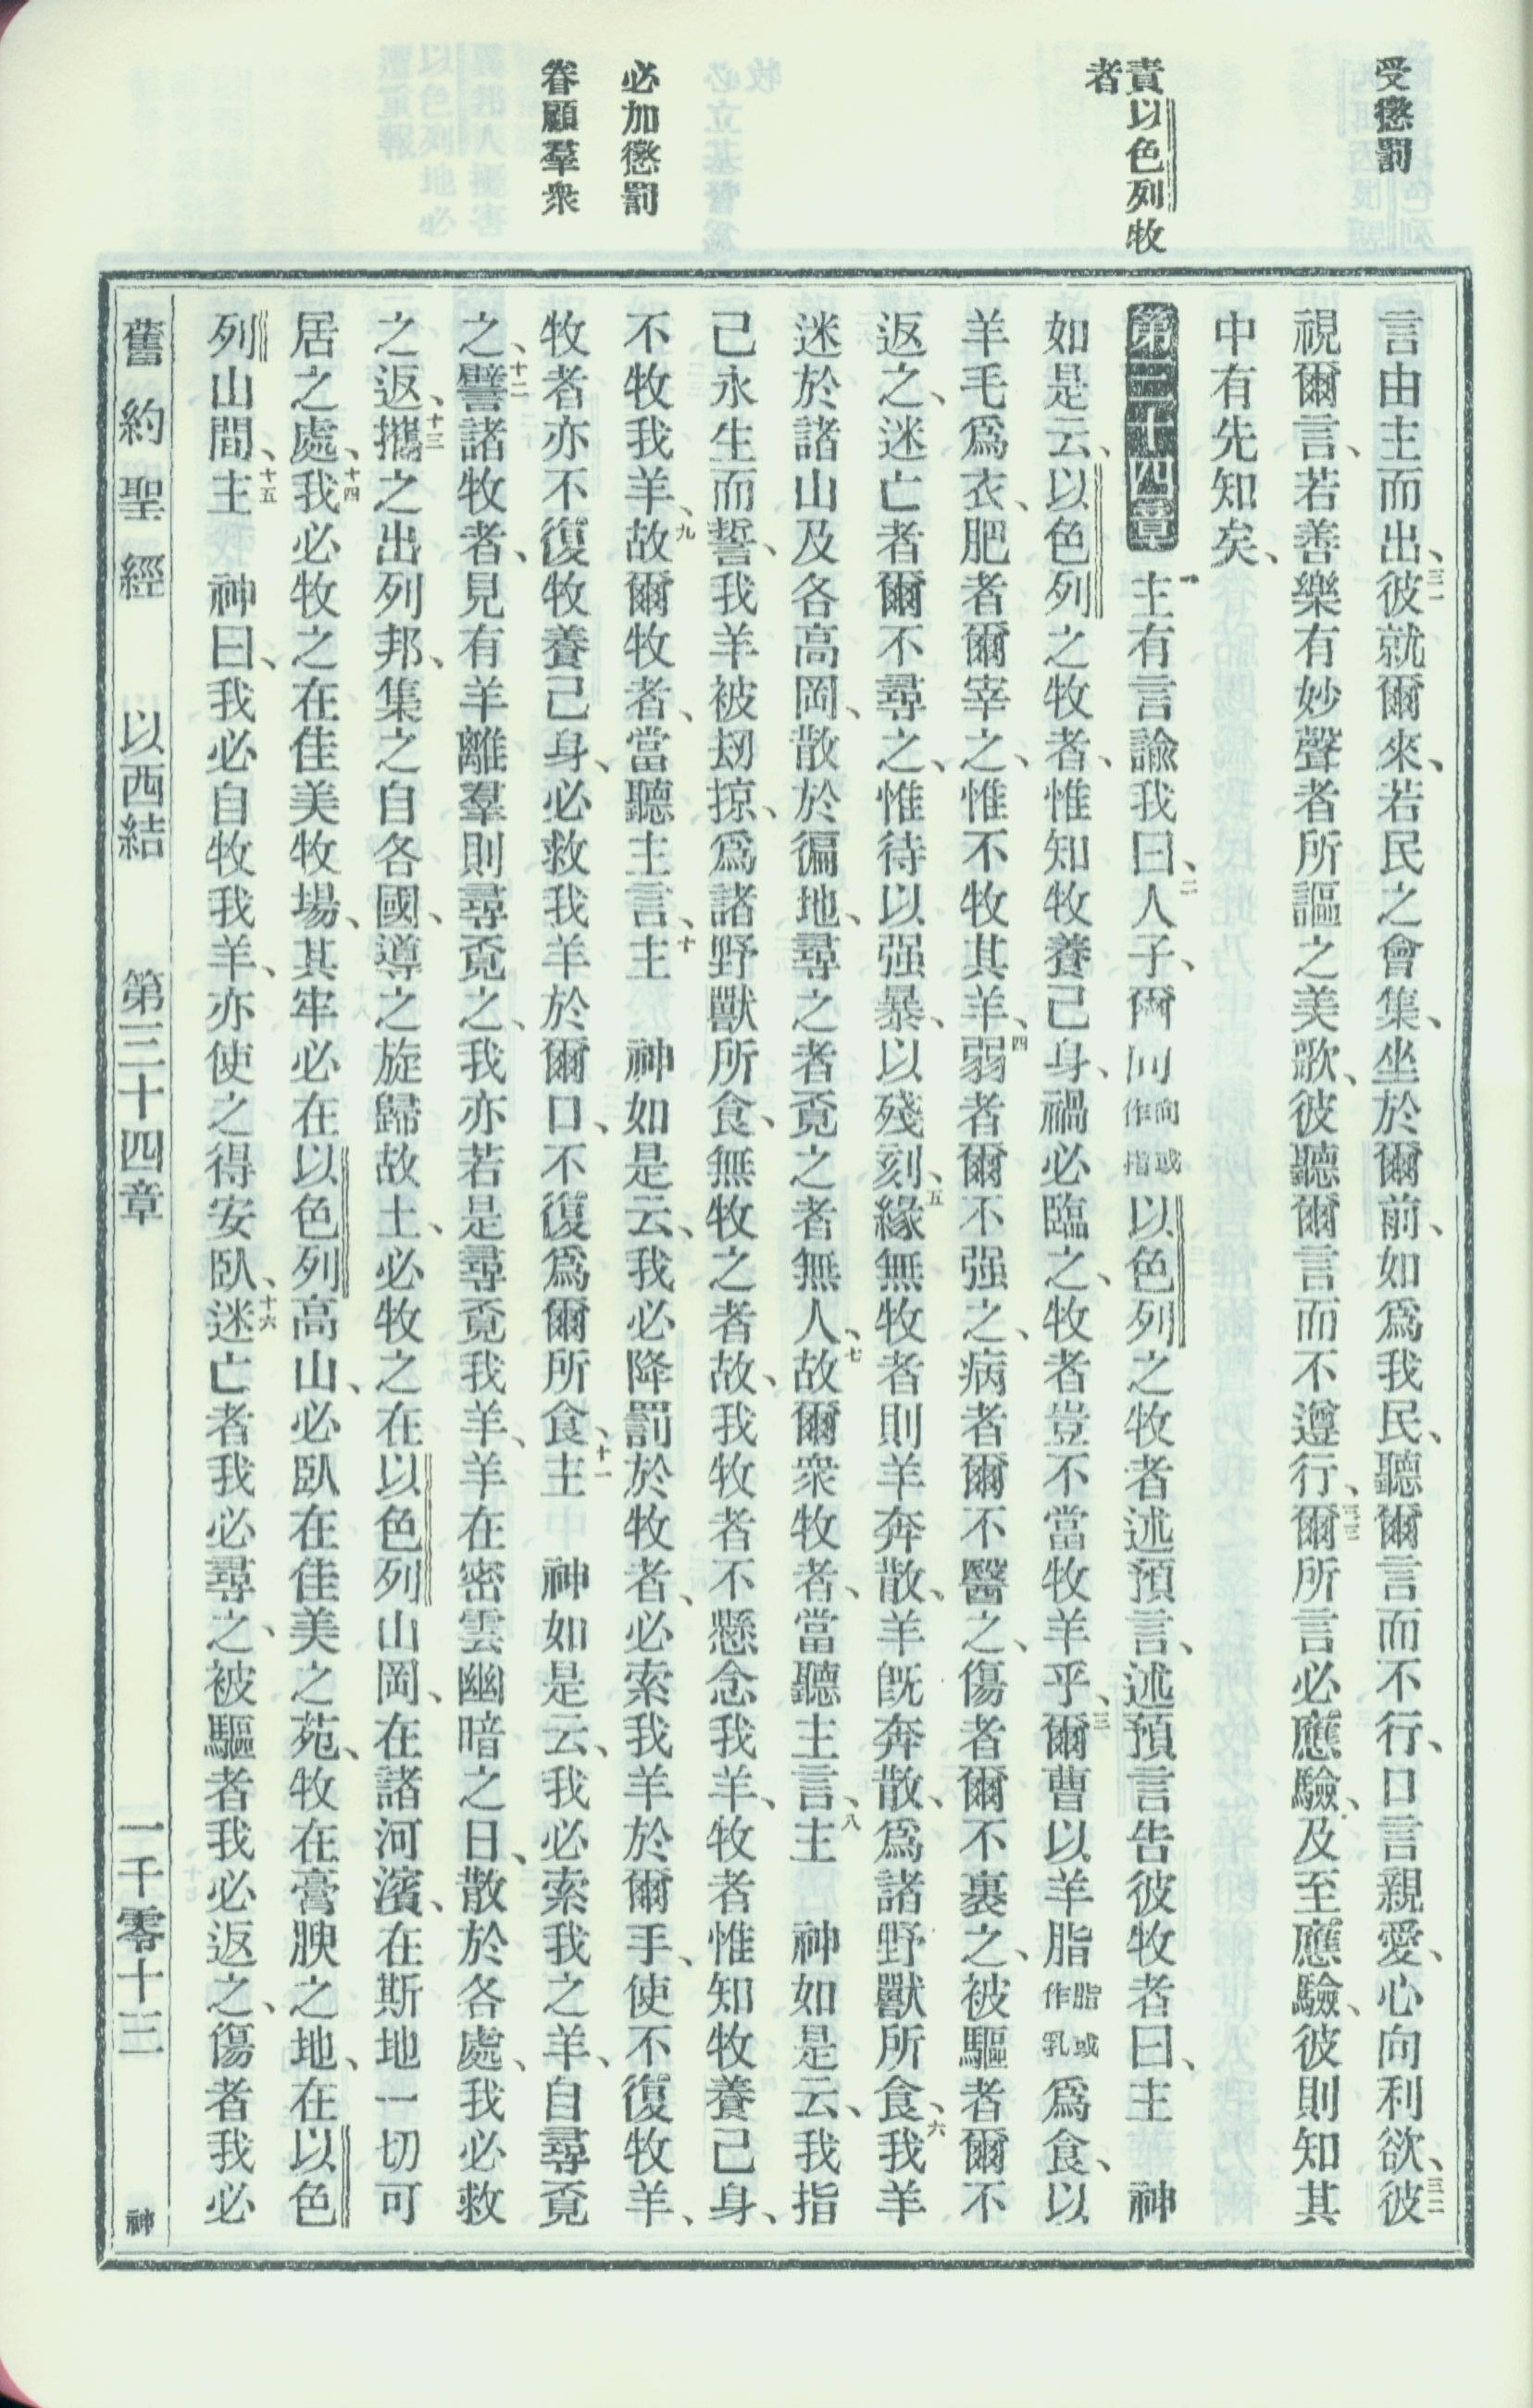 受懲罰
責以色列牧
者
必加懲罰
眷顧羣衆
言由主而出、三一彼就爾來、若民之會集、坐於爾前、如爲我民、聽爾言而不行、口言親愛、心向利欲、三二彼
視爾言、若善樂有妙聲者所謳之美歌、彼聽爾言而不遵行、三三爾所言必應驗、及至應驗、彼則知其
中有先知矣、
第三十四章 一主有言諭我曰、二人子、爾向向或作指以色列之牧者述預言、述預言告彼牧者曰、主　神
如是云、以色列之牧者、惟知牧養己身、禍必臨之、牧者豈不當牧羊乎、三爾曹以羊脂脂或作乳爲食、以
羊毛爲衣、肥者爾宰之、惟不牧其羊、四弱者爾不强之、病者爾不醫之、傷者爾不裹之、被驅者爾不
返之、迷亡者爾不尋之、惟待以强暴、以殘刻、五緣無牧者則羊奔散、羊既奔散、爲諸野獸所食、六我羊
迷於諸山及各高岡、散於徧地、尋之者覓之者無人、七故爾衆牧者、當聽主言、八主　神如是云、我指
己永生而誓、我羊被刼掠、爲諸野獸所食、無牧之者故、我牧者不懸念我羊、牧者惟知牧養己身、
不牧我羊、九故爾牧者、當聽主言、十主　神如是云、我必降罰於牧者、必索我羊於爾手、使不復牧羊、
牧者亦不復牧養己身、必救我羊於爾口、不復爲爾所食、十一主　神如是云、我必索我之羊、自尋覓
之、十二譬諸牧者、見有羊離羣則尋覓之、我亦若是尋覓我羊、羊在密雲幽暗之日、散於各處、我必救
之返、十三攜之出列邦、集之自各國、導之旋歸故土、必牧之在以色列山岡、在諸河濱、在斯地一切可
居之處、十四我必牧之在佳美牧場、其牢必在以色列高山、必臥在佳美之苑、牧在膏腴之地、在以色
列山間、十五主　神曰、我必自牧我羊、亦使之得安臥、十六迷亡者我必尋之、被驅者我必返之、傷者我必
舊約聖經　以西結　第三十四章　一千零十三　神